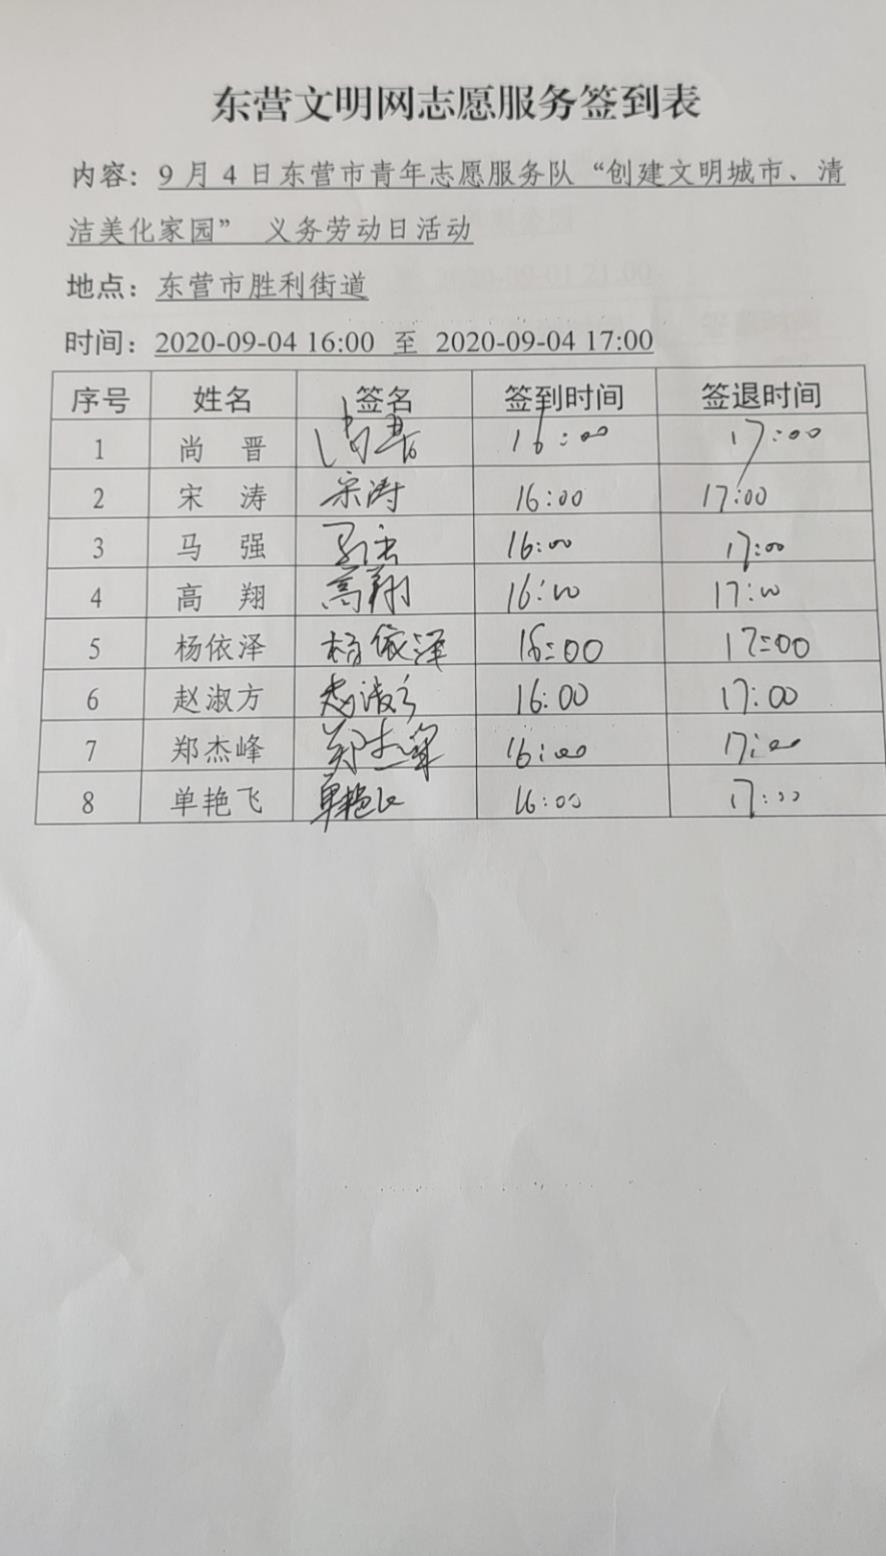 东营文明网志愿服务签到表
内容：9 月 4 日东营市青年志愿服务队“创建文明城市、清
洁美化家园” 义务劳动日活动
地点：东营市胜利街道
时间：2020-09-04 16:00 至 2020-09-04 17:00
序号 姓名 签名 签到时间 签退时间
1 尚 晋 尚晋 16:00 17:00
2 宋 涛 宋涛 16:00 17:00
3 马 强 马强 16:00 17:00
4 高 翔 高翔 16:00 17:00
5 杨依泽 杨依泽 16:00 17:00
6 赵淑方 赵淑方 16:00 17:00
7 郑杰峰 郑杰峰 16:00 17:00
8 单艳飞 单艳飞 16:00 17:00